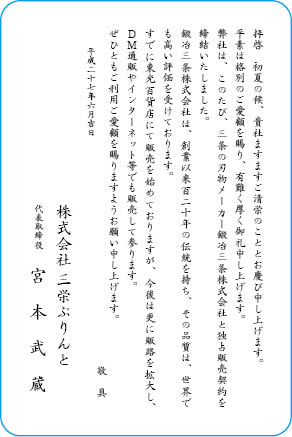 拝啓　初夏の候、貴社ますますご清栄のこととお慶び申し上げます。
平素は格別のご愛顧を賜り、有難く厚く御礼申し上げます。
弊社は、このたび、三条の刃物メーカー鍛冶三条株式会社と独占販売契約を
締結いたしました。
鍛冶三条株式会社は、創業以来百二十年の伝統を持ち、その品質は、世界で
も高い評価を受けております。
すでに東光百貨店にて販売を始めておりますが、今後は更に販路を拡大し、
DM通販やインターネット等でも販売して参ります。
ぜひともご利用ご愛顧を賜りますようお願い申し上げます。
敬具
平成二十七年六月吉日
株式会社 三栄ぷりんと
代表取締役　宮本武蔵